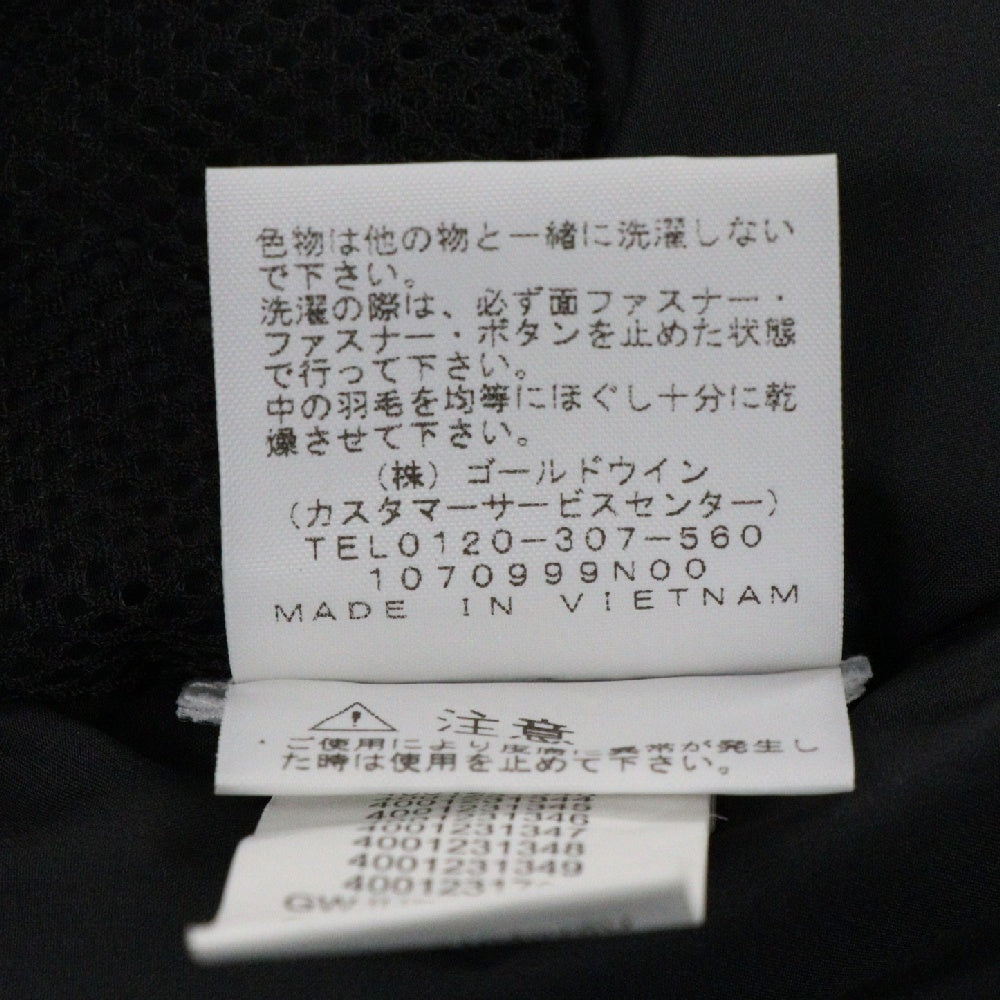 色物は他の物と一緒に洗濯しない
で下さい。
洗濯の際は、必ず面ファスナー・
ファスナー・ボタンを止めた状態
で行って下さい。
中の羽毛を均等にほぐし十分に乾
燥させて下さい。
(株)ゴールドウイン
(カスタマーサービスセンター)
TEL0120-307-560
1070999N00
MADE IN VIETNAM
注意
・ご使用により皮膚に異常が発生し
た時は使用を止めて下さい。
4001231346
4001231347
4001231348
4001231349
GW